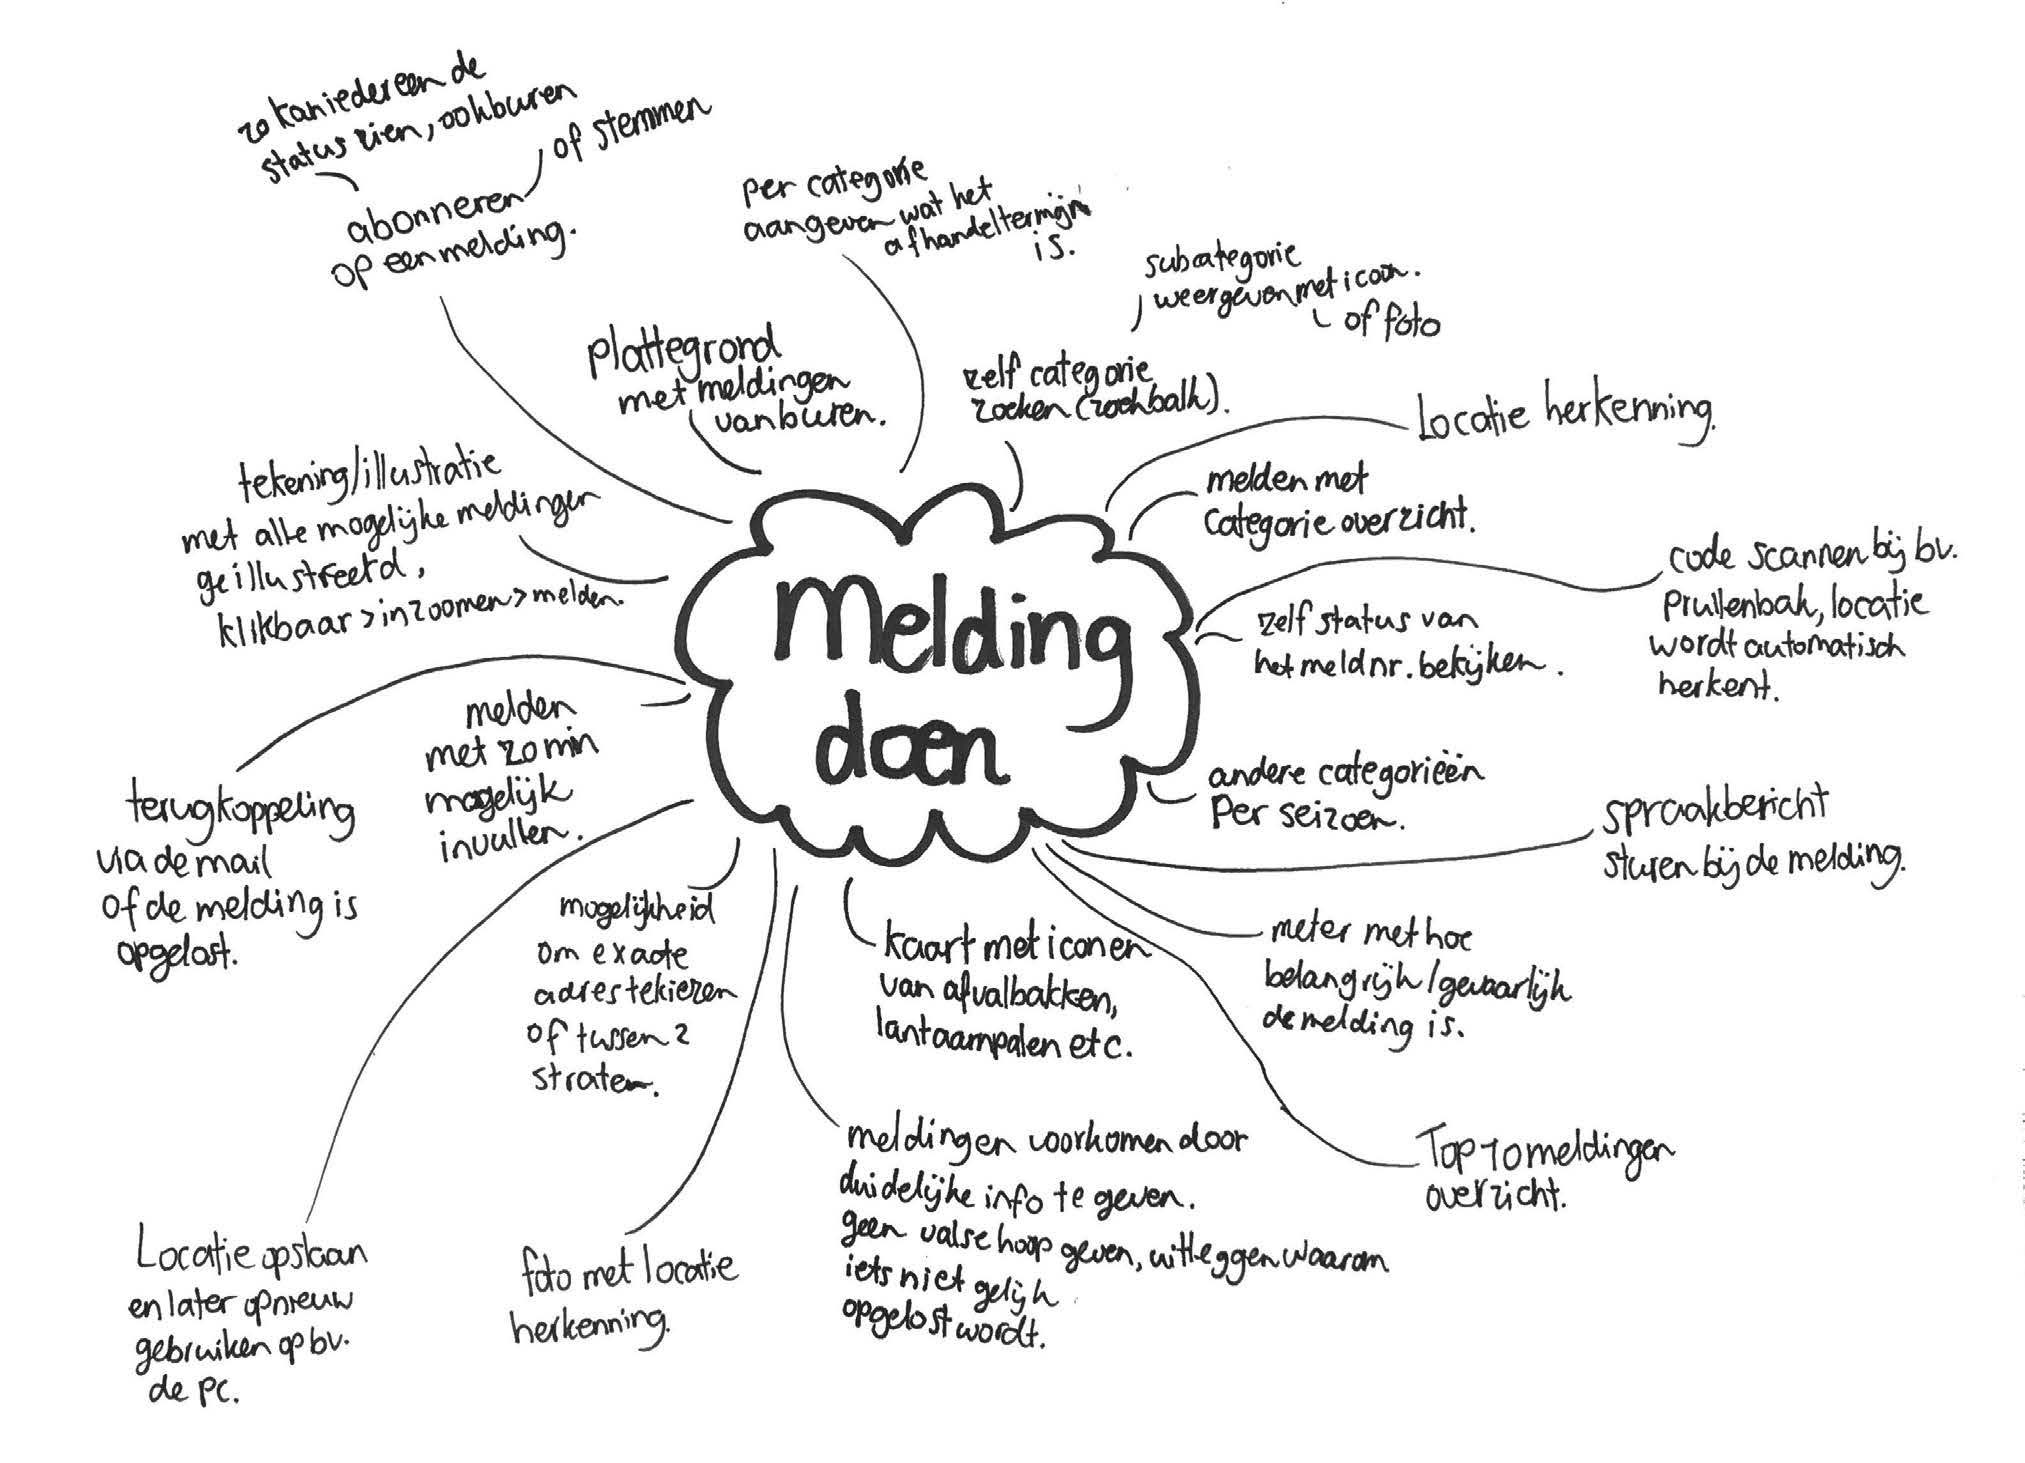 zo kan iedereen de
status zien, ook buren
of stemmen
abonneren
op een melding.
per categorie
aangeven wat het
afhandeltermijn
is.
subcategorie
weergeven met icoon.
of foto
plattegrond
met meldingen
van buren.
zelf categorie
zoeken (zoekbalk).
Locatie herkenning.
tekening/illustratie
met alle mogelijke meldingen
geillustreerd,
klikbaar > inzoomen > melden.
melden met
categorie overzicht.
code scannen bij bv.
prullenbak, locatie
wordt automatisch
herkent.
zelf status van
het meldnr. bekijken.
Melding
doen
melden
met zo min
mogelijk
invullen.
terugkoppeling
via de mail
of de melding is
opgelost.
andere categorieën
Per seizoen.
spraakbericht
sturen bij de melding.
mogelijkheid
om exacte
adres te kiezen
of tussen 2
straten.
kaart met iconen
van afvalbakken,
lantaarnpalen etc.
meter met hoe
belangrijk/gevaarlijk
de melding is.
meldingen voorkomen door
duidelijke info te geven.
geen valse hoop geven, uitleggen waarom
iets niet gelijk
opgelost wordt.
Top 10 meldingen
overzicht.
Locatie opslaan
en later opnieuw
gebruiken op bv.
de PC.
foto met locatie
herkenning.